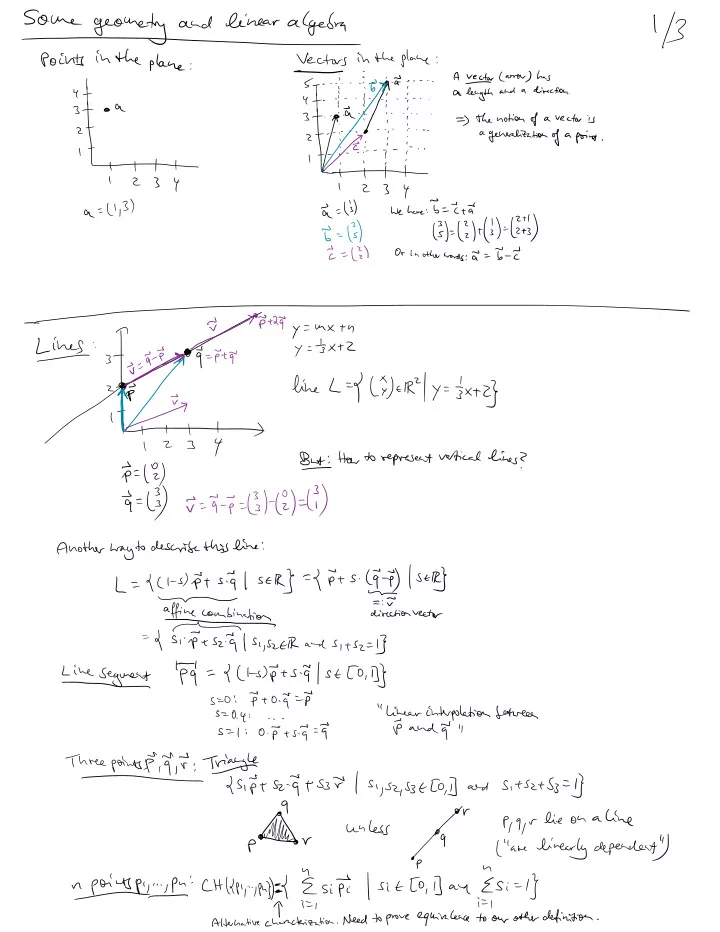 Some geometry and linear algebra
1/3
Points in the plane:
4
3
2
1
• a
1 2 3 4
a = (1,3)
Vectors in the plane:
5
4
3
2
1
b⃗
a⃗
a⃗
c⃗
1 2 3 4
a⃗ = (1 3)
b⃗ = (3 5)
c⃗ = (2 2)
A vector (arrow) has
a length and a direction
=> the notion of a vector is
a generalization of a point.
We have: b⃗ = c⃗ + a⃗
(3 5) = (2 2) + (1 3) = (2+1 2+3)
Or in other words: a⃗ = b⃗ - c⃗
Lines:
3
2
1
1 2 3 4
p⃗
v⃗ = q⃗-p⃗
q⃗ = p⃗+v⃗
v⃗
p⃗+2v⃗
v⃗
p⃗ = (0 2)
q⃗ = (3 3)
v⃗ = q⃗-p⃗ = (3 3) - (0 2) = (3 1)
y = mx + n
y = 1/3 x + 2
line L = { (x y) ∈ ℝ² | y = 1/3 x + 2 }
But: How to represent vertical lines?
Another way to describe this line:
L = { (1-s) p⃗ + s·q⃗ | s∈ℝ } = { p⃗ + s·(q⃗-p⃗) | s∈ℝ }
affine combination
=: v⃗
direction vector
= { s₁·p⃗ + s₂·q⃗ | s₁,s₂∈ℝ and s₁+s₂=1 }
Line segment pq = { (1-s)p⃗ + s·q⃗ | s ∈ [0,1] }
s=0: p⃗ + 0·q⃗ = p⃗
s=0.4: ...
s=1: 0·p⃗ + s·q⃗ = q⃗
"Linear interpolation between
p⃗ and q⃗"
Three points p⃗, q⃗, r⃗: Triangle
{ s₁p⃗ + s₂·q⃗ + s₃r⃗ | s₁,s₂,s₃ ∈ [0,1] and s₁+s₂+s₃=1 }
q
p
r
unless
r
q
p
p,q,r lie on a line
("are linearly dependent")
n points p₁,...,pₙ: CH({p₁,..,pₙ}) = { ∑ᵢ₌₁ⁿ sᵢ p⃗ᵢ | sᵢ ∈ [0,1] and ∑ᵢ₌₁ⁿ sᵢ = 1 }
Alternative characterization. Need to prove equivalence to our other definition.